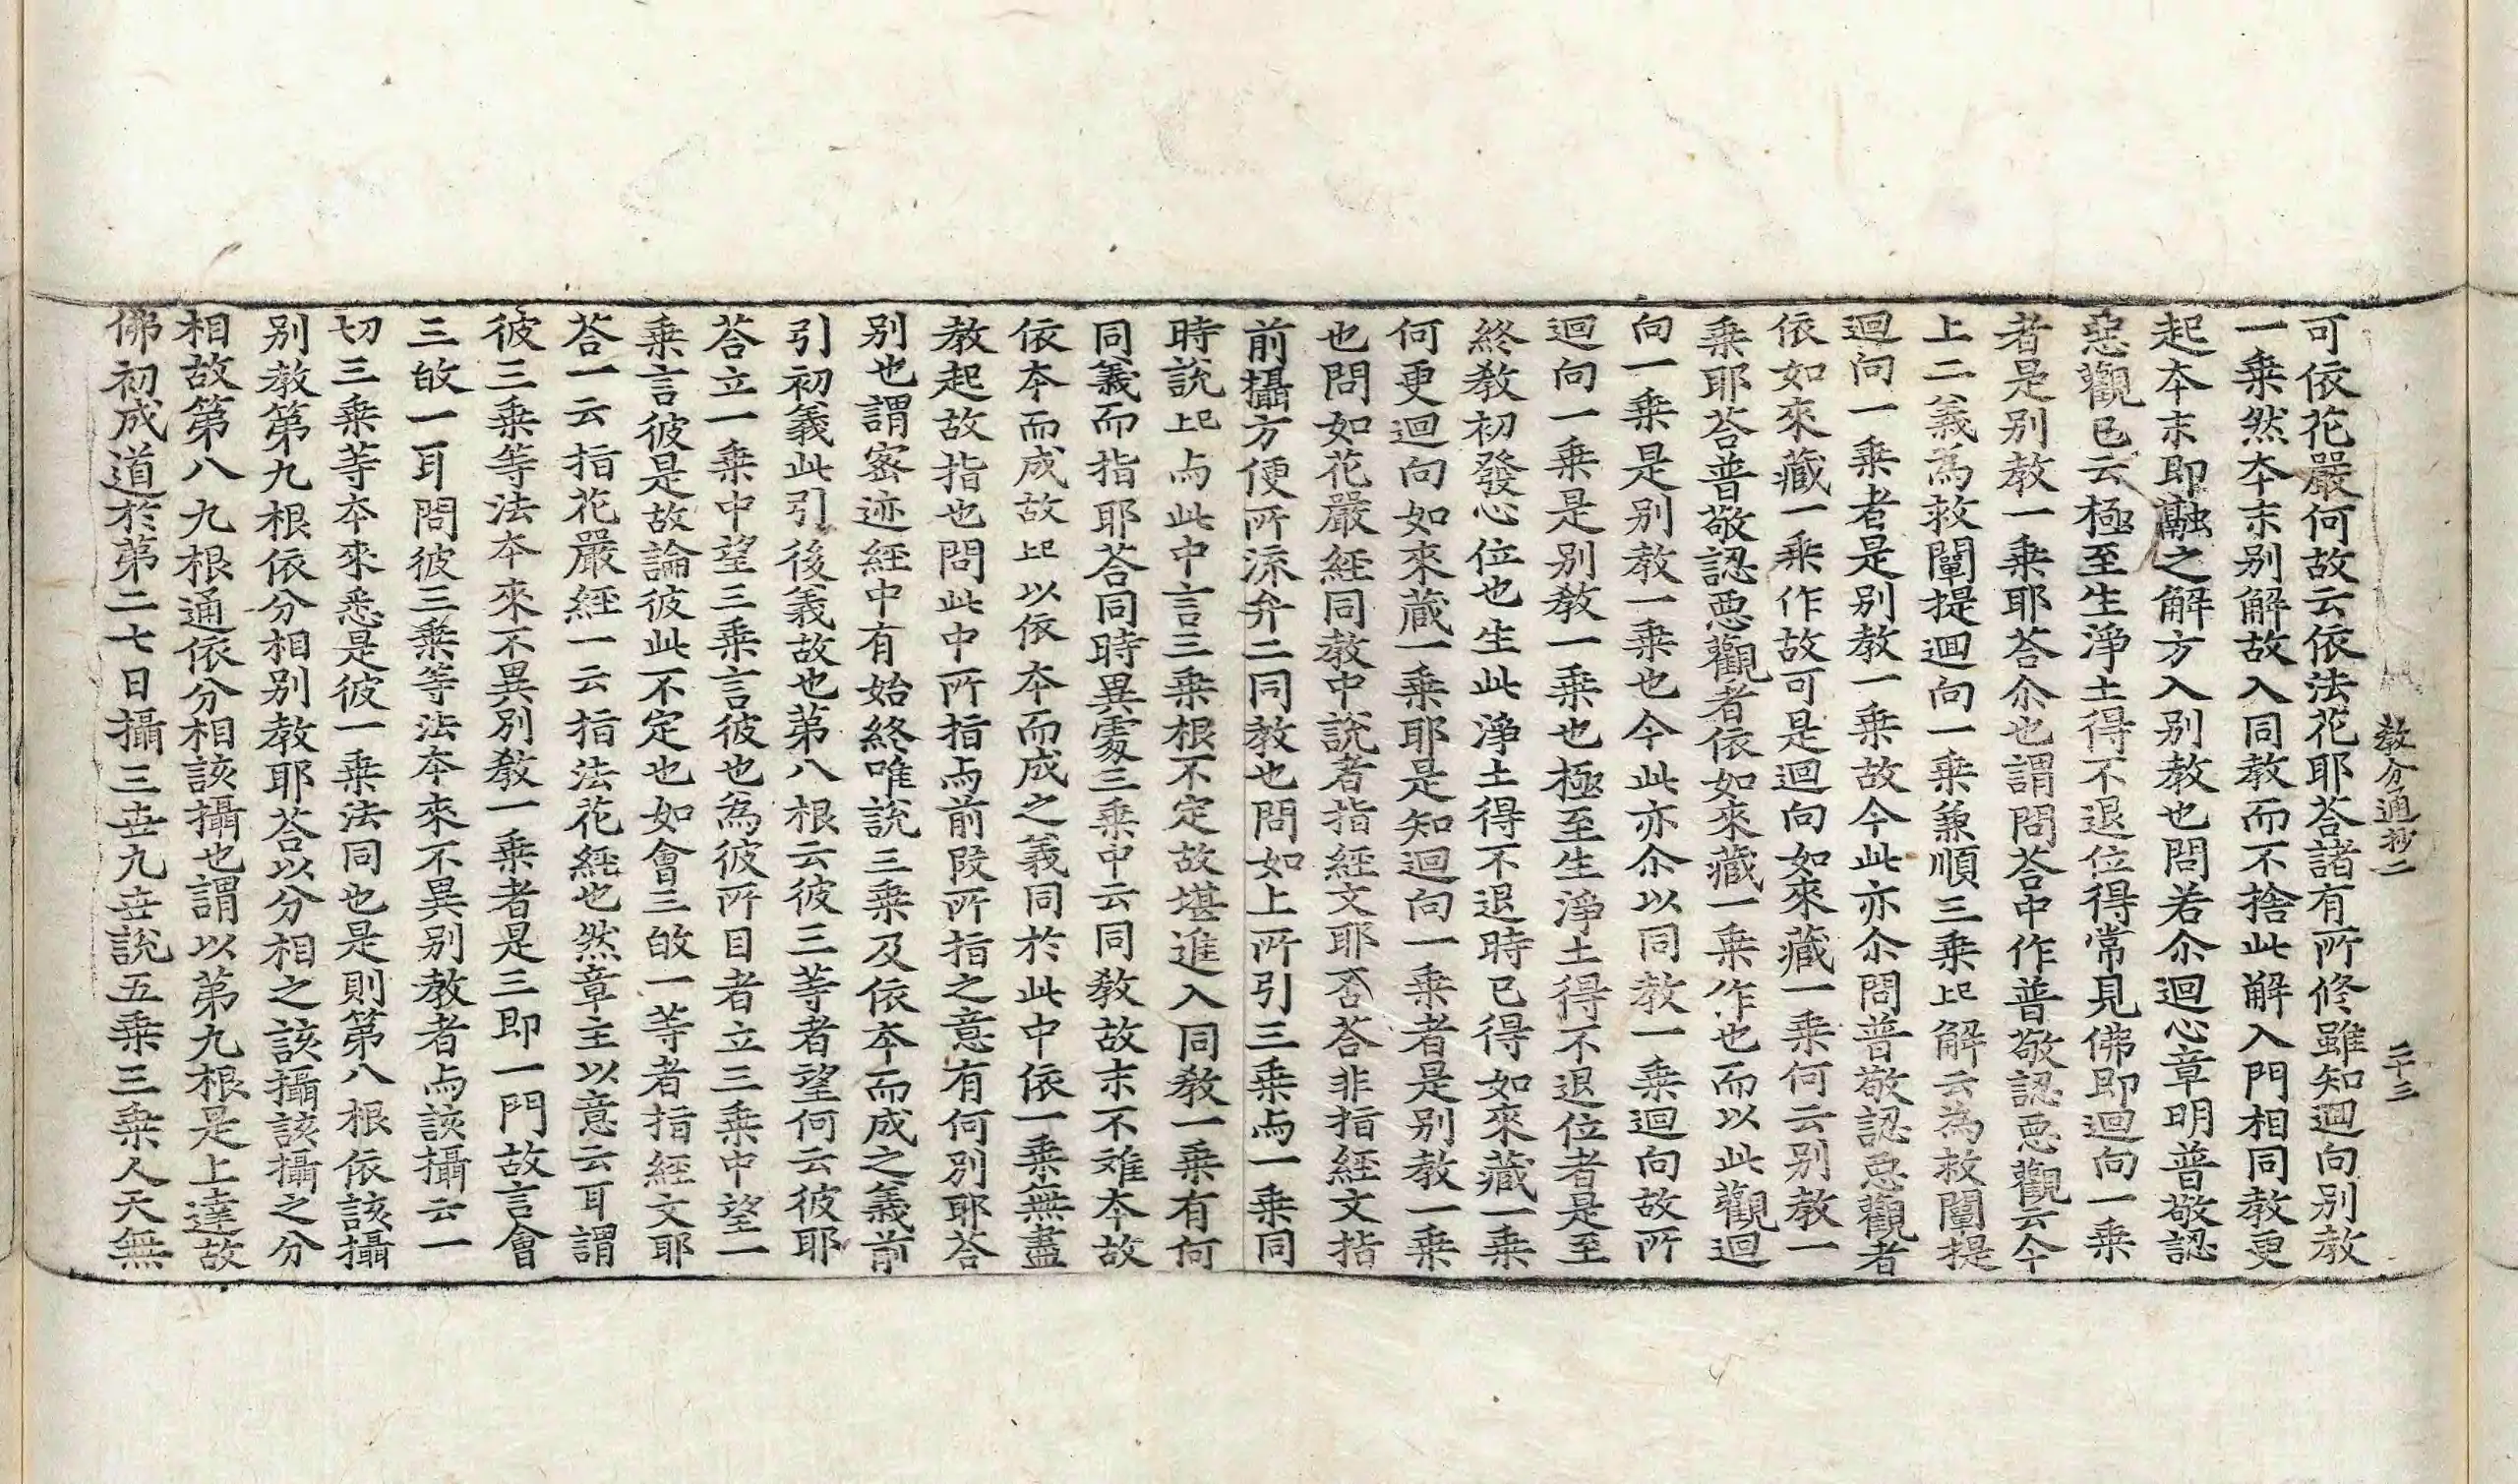 教分通抄二　二十三
可依花嚴何故云依法花耶荅諸有所修雖知迴向別教
一乗然夲末别解故入同教而不捨此解入門相同教更
起夲末即融之解方入别教也問若尒迴心章明普敬認
惡觀已云極至生淨土得不退位得常見佛即迴向一乗
者是别教一乗耶荅尒也謂問荅中作普敬認惡觀云今
上二義為救闡提迴向一乗兼順三乗㠯解云為救闡提
迴向一乗者是别教一乗故今此亦尒問普敬認惡觀者
依如來藏一乗作故可是迴向如來藏一乗何云别教一
乗耶荅普敬認惡觀者依如來藏一乗作也而以此觀迴
向一乗是别教一乗也今此亦尒以同教一乗迴向故所
迴向一乗是别教一乗也極至生淨土得不退位者是至
終教初發心位也生此淨土得不退時已得如來藏一乗
何更迴向如來蔵一乗耶是知迴向一乗者是别教一乗
也問如花嚴經同教中說者指經文耶否荅非指經文指
前攝方便所流弁二同教也問如上所引三乗与一乗同
時説㠯与此中言三乗根不定故堪進入同教一乗有何
同義而指耶荅同時異䖏三乗中云同教故末不难夲故
依夲而成故㠯以依夲而成之義同於此中依一乗無盡
教起故指也問此中所指与前叚所指之意有何别耶荅
别也謂宻迹經中有始終唯説三乗及依夲而成之義前
引初義此引後義故也第八根云彼三等者望何云彼耶
荅立一乗中望三乗言彼也為彼所目者立三乗中望一
乗言彼是故論彼此不定也如會三䢛一等者指經文耶
荅一云指花嚴經一云指法花經也然章主以意云耳謂
彼三乗等法夲來不異别教一乗者是三即一門故言會
三䢛一耳問彼三乗等法夲來不異别教者与該攝云一
切三乗等夲來悉是彼一乗法同也是則第八根依該攝
别教第九根依分相别教耶荅以分相之該攝該攝之分
相故第八九根通依分相該攝也謂以第九根是上達故
佛初成道於第二七日攝三世九世説五乗三乗人天無